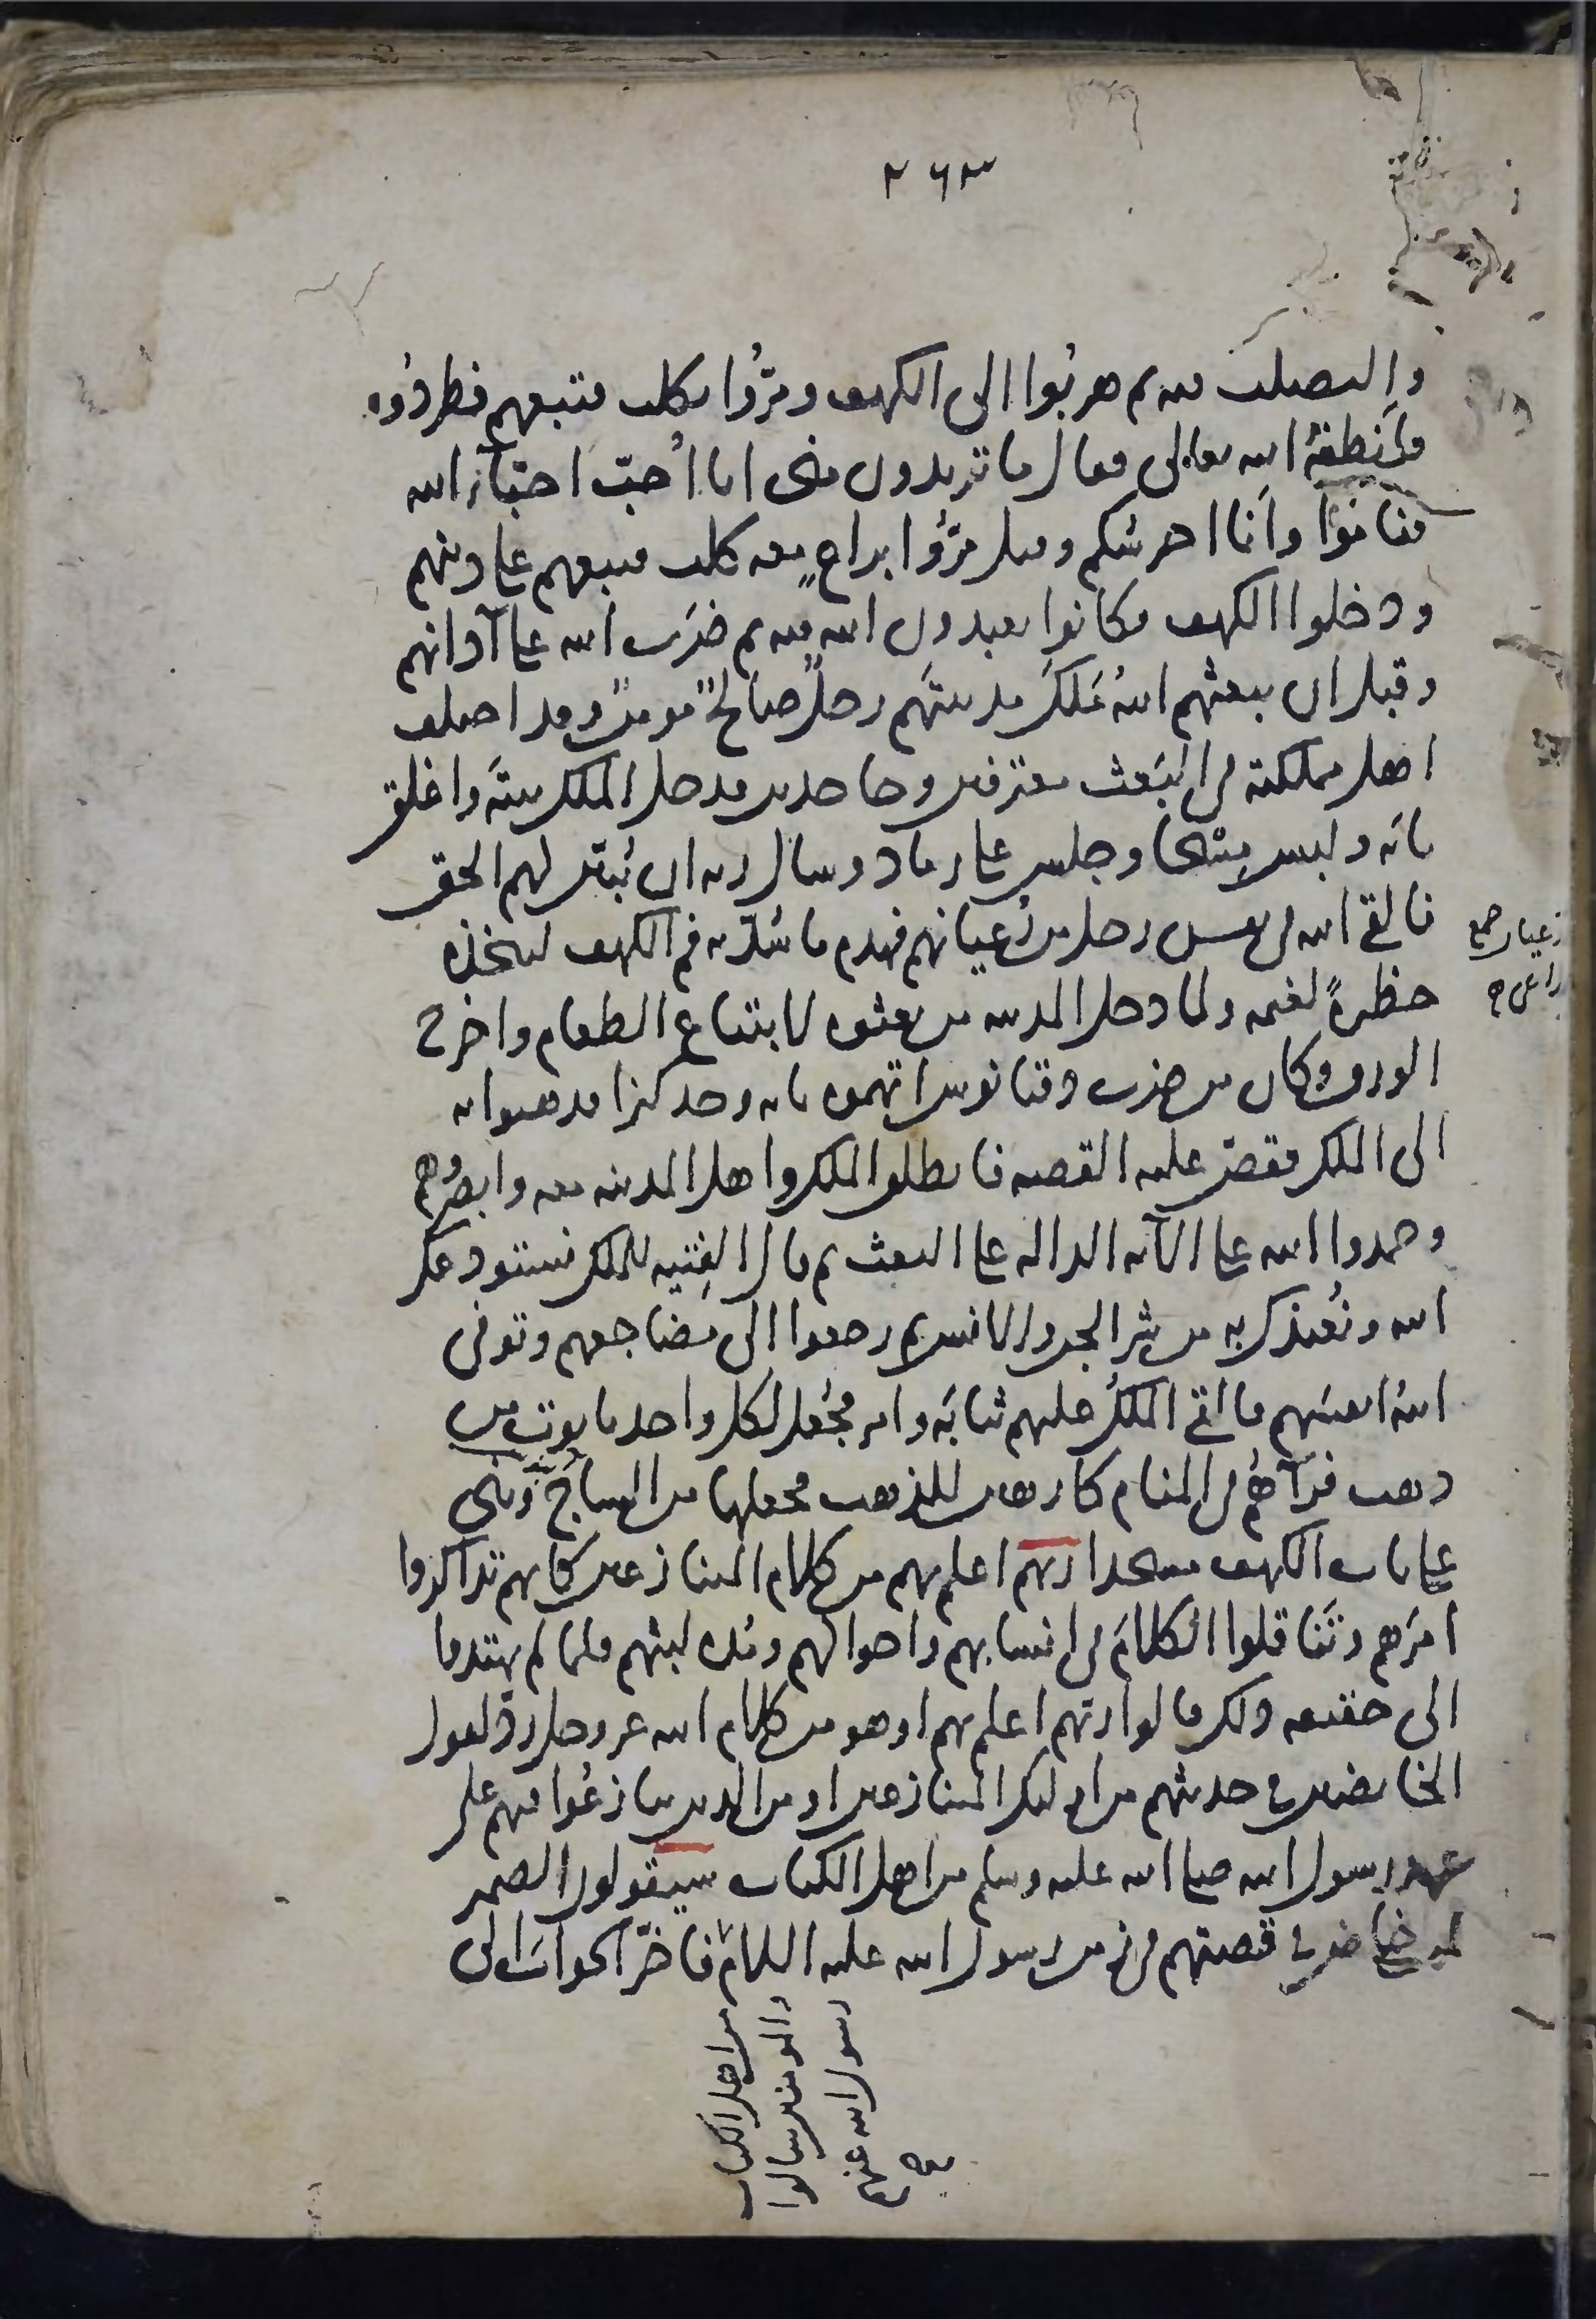 ٢٦٣
والتصلب فيه ثم هربوا الى الكهف ومرّوا بكلب فتبعهم فطردوه
فأنطقه الله تعالى فقال ما تريدون منى انا أُحبّ احبّاء الله
فناموا وأنا احرسكم وقيل مرّوا براعٍ معه كلب فتبعهم على دينهم
ودخلوا الكهف فكانوا يعبدون الله فيه ثم ضرب الله على آذانهم
وقبل ان يبعثهم الله مَلَكَ مدينتَهم رجلٌ صالحٌ مومنٌ وقد اختلف
اهل مملكته في البعث معترفين وجاحدين فدخل الملك بيته واغلق
بابه ولبس مِسْحًا وجلس على رماد وسال ربه ان يُبيّن لهم الحق
فالقى الله في نفس رجل من رُعيانهم فهدم ما سُدّ به فم الكهف ليتخذه
حظيرةً لغنمه ولما دخل المدينه من بعثوه لابتياع الطعام واخرج
الورق وكان من ضرب دقيانوس اتهموه بانه وجد كنزا فذهبوا به
الى الملك فقصّ عليه القصه فانطلق الملك واهل المدينه معه وابصروهم
وحمدوا الله على الآيه الداله على البعث ثم قال الفتيه للملك نستودعك
الله ونُعيذك به من شر الجن والانس ثم رجعوا الى مَضاجعهم وتوفى
اللهُ انفسَهم فالقى الملكُ عليهم ثيابَه وامر فجُعل لكل واحد تابوت من
ذهب فرآهُم في المنام كارهين للذهب فجعلها من الساج وبنى
على باب الكهف مسجدا ربهم اعلم بهم من كلام المتنازعين كانهم تذاكروا
امرَهم وتَناقلوا الكلامَ في انسابهم واحوالهم ومُدة لبثهم فلما لم يهتدوا
الى حقيقه ذلك قالوا ربهم اعلم بهم او هو من كلام الله عز وجل ردّ لقول
الخائضين في حديثهم من اوليك المتنازعين او من الذين تنازعُوا فيهم على
عهد رسول الله صلى الله عليه وسلم من اهل الكتاب سيقولون الضمير
لمن خاض في قصتهم في زمن رسول الله عليه السلام فاخّر الجوابَ الى
رعيان جمع
راعى ص
من اهل الكتاب
والمومنين سالوا
رسول الله عنهم
صح